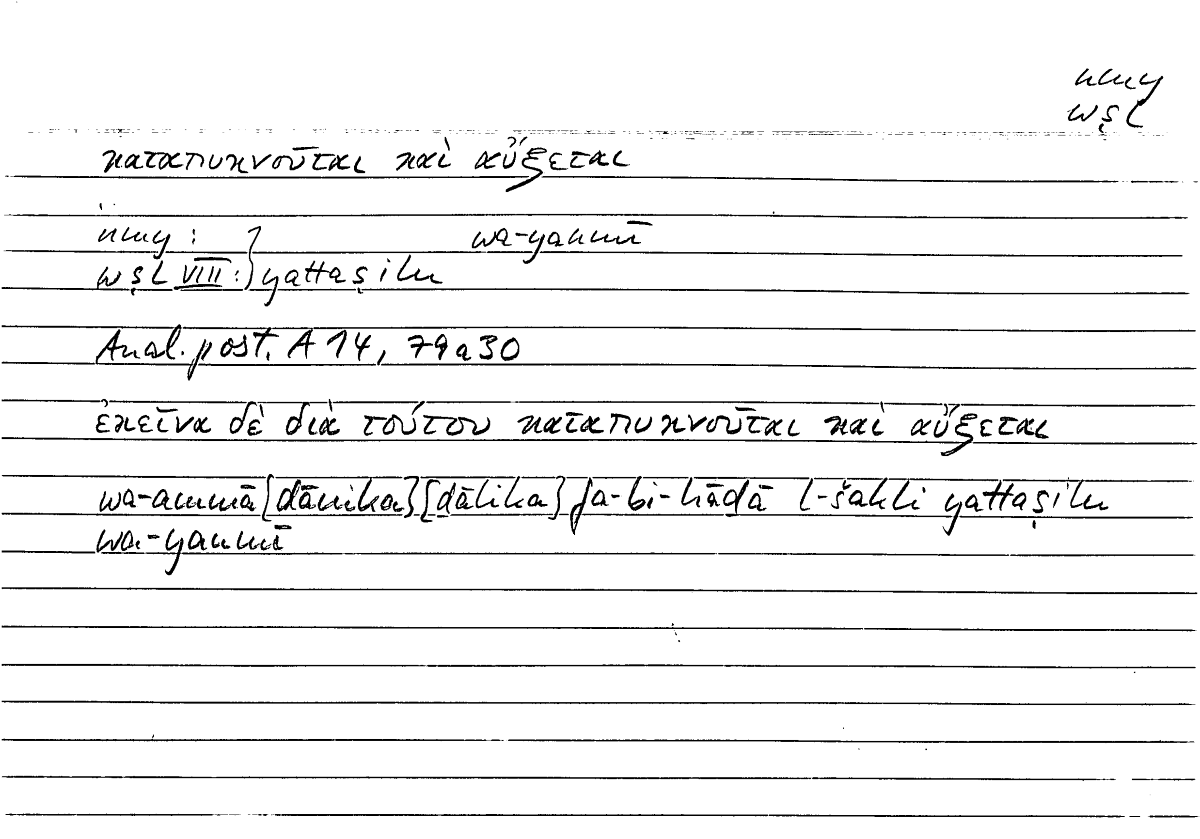 nmy
wṣl
καταπυκνοῦται καὶ αὔξεται
nmy : } wa-yanmī
wṣl VIII : } yattaṣilu
Anal. post. A 14, 79a30
ἐκεῖνα δὲ διὰ τούτου καταπυκνοῦται καὶ αὔξεται
wa-ammā {ḏānika} [ḏālika] fa-bi-hāḏā l-šakli yattaṣilu
wa-yanmī